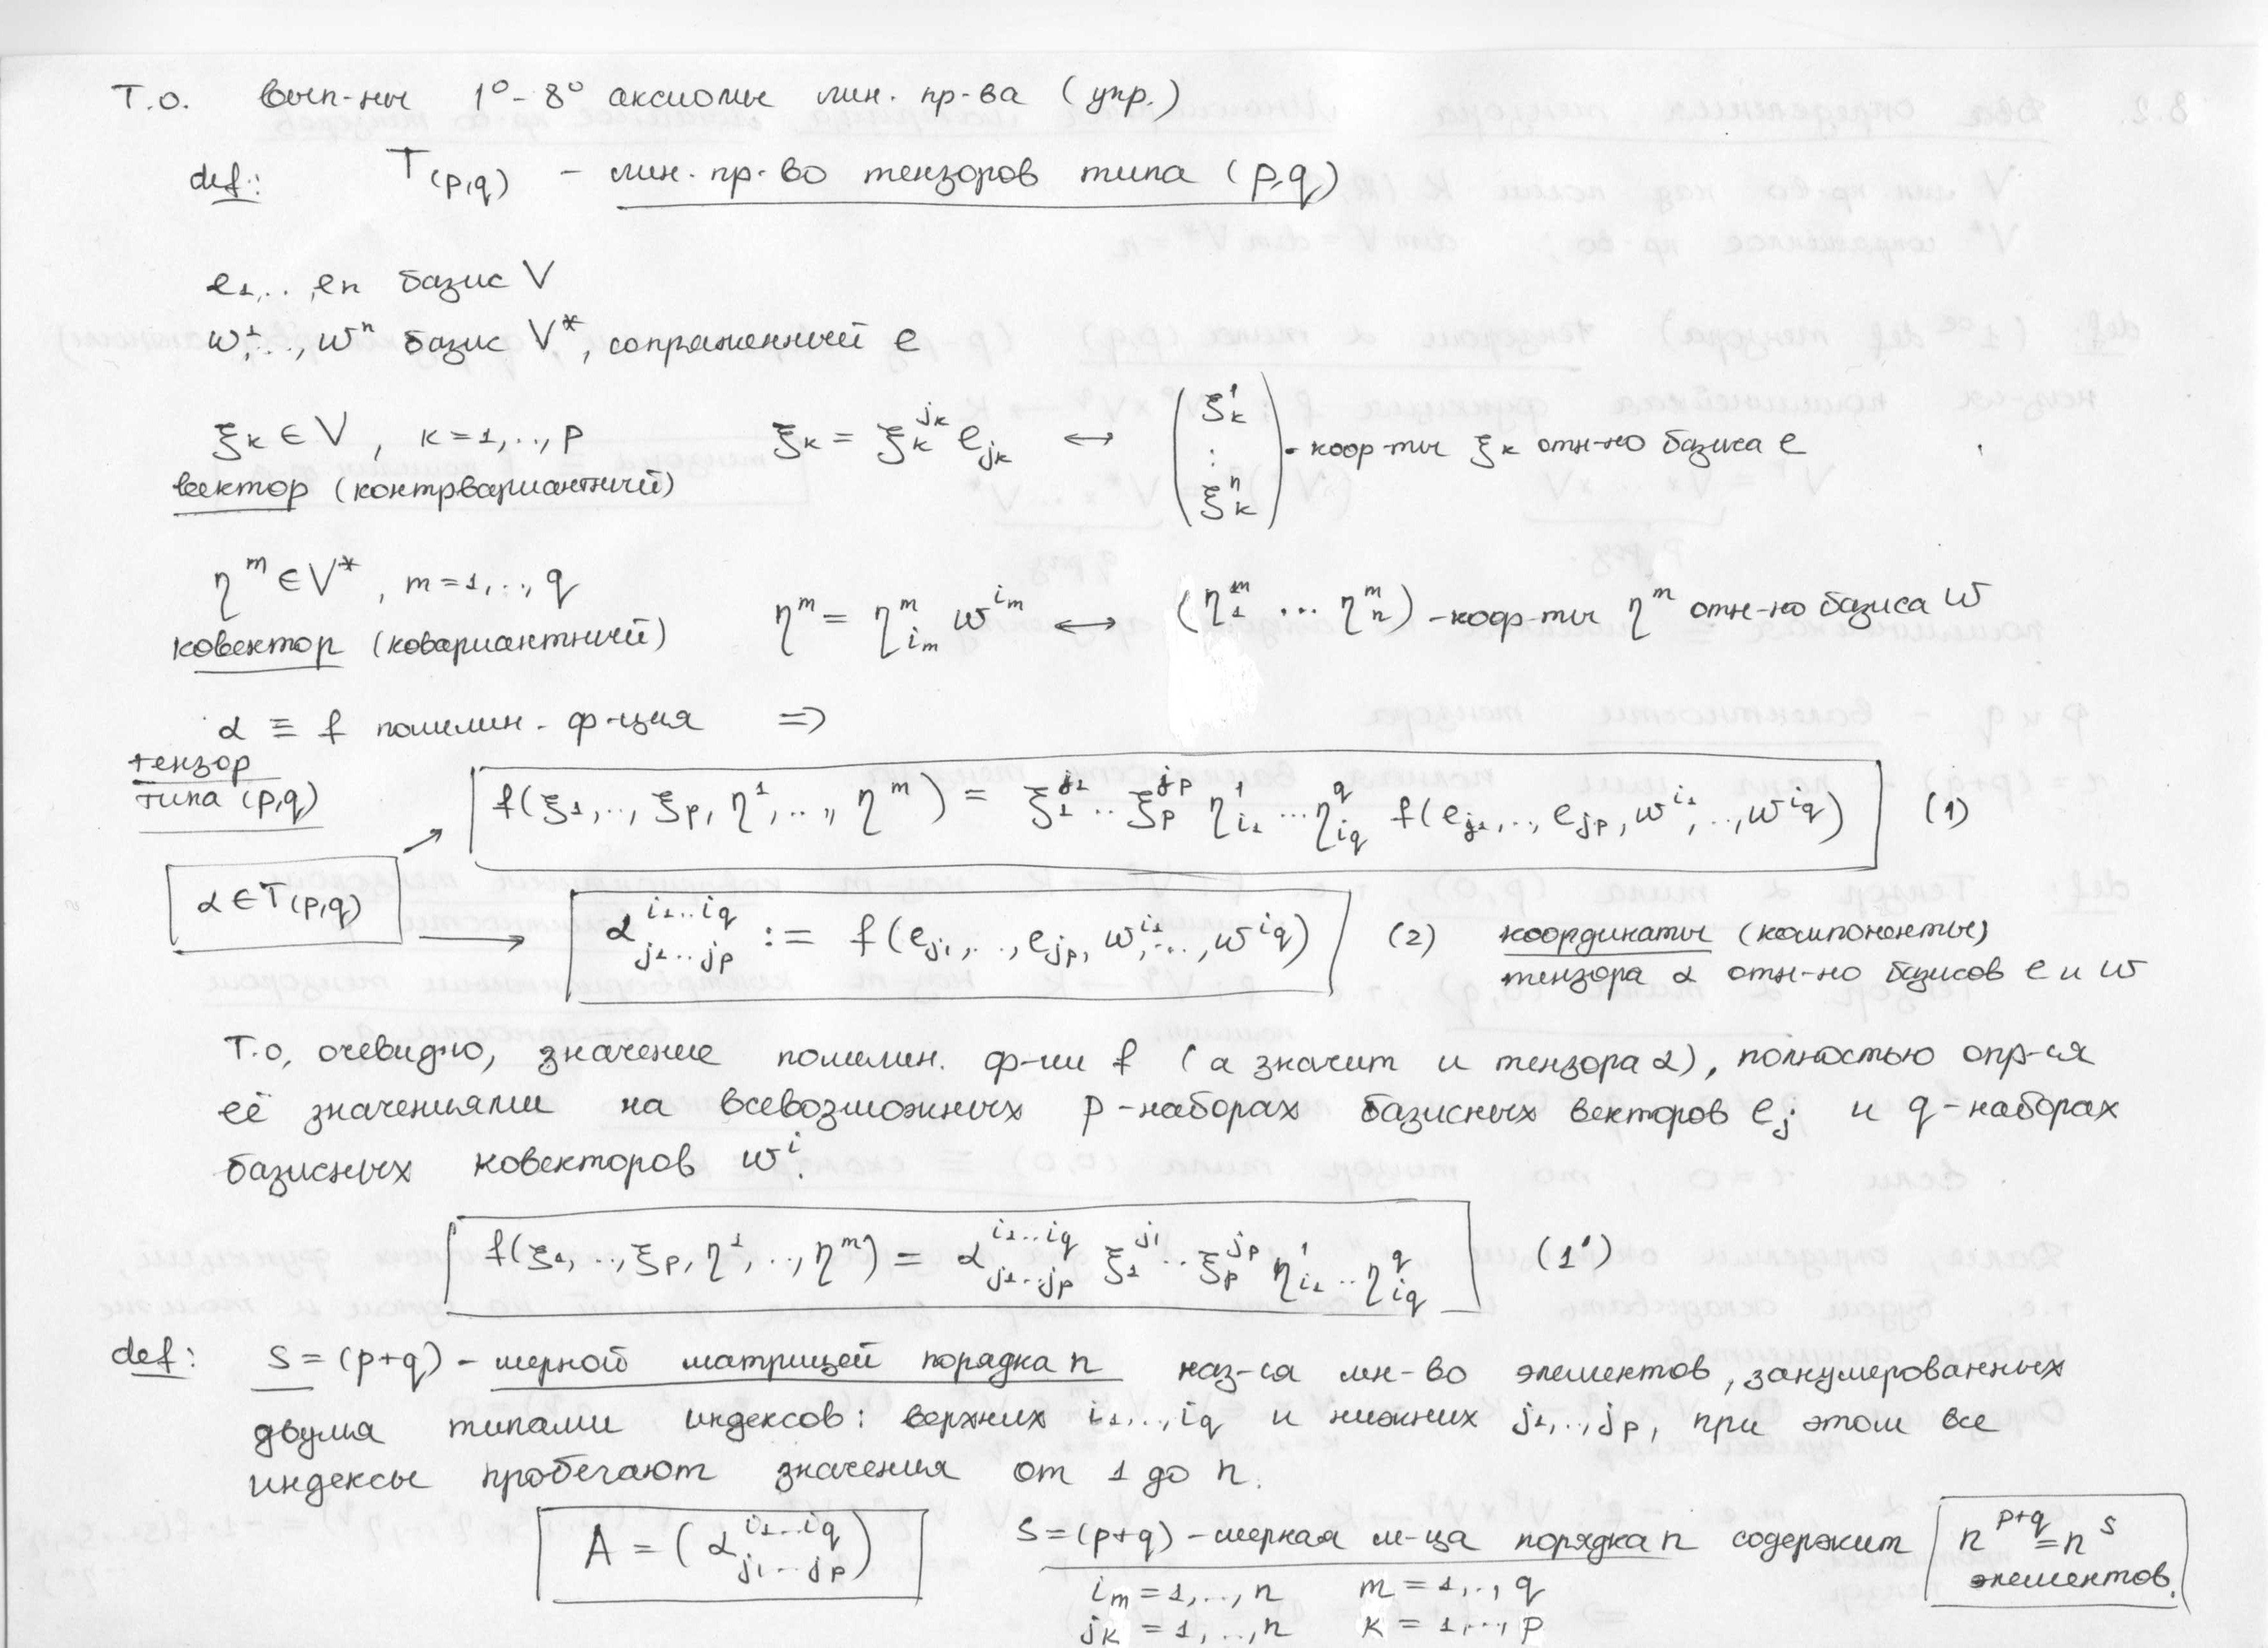 Т.о. вып-ны 1° - 8° аксиомы лин. пр-ва (упр.)
def: T(p,q) - лин. пр-во тензоров типа (p,q)
e₁,..,eₙ базис V
w¹,..,wⁿ базис V*, сопряженный e
ξₖ ∈ V, k=1,..,p ξₖ = ξₖ^{jₖ} e_{jₖ} ↔ (ξₖ¹ : ξₖⁿ) - коор-ты ξₖ отн-но базиса e
вектор (контрвариантный)
η^m ∈ V*, m=1,..,q η^m = η^m_{i_m} w^{i_m} ↔ (η^m_1 ... η^m_n) - коор-ты η^m отн-но базиса w
ковектор (ковариантный)
α ≡ f полилин. ф-ция ⇒
тензор
типа (p,q)
f(ξ₁,..,ξ_p, η¹,.., η^m) = ξ₁^{j₁}..ξ_p^{j_p} η¹_{i₁}...η^q_{i_q} f(e_{j₁},..,e_{j_p}, w^{i₁},..,w^{i_q}) (1)
α ∈ T(p,q)
α^{i₁..i_q}_{j₁..j_p} := f(e_{j₁},..,e_{j_p}, w^{i₁},..,w^{i_q}) (2) координаты (компоненты)
тензора α отн-но базисов e и w
Т.о, очевидно, значение полилин. ф-ии f (а значит и тензора α), полностью опр-ся
её значениями на всевозможных p-наборах базисных векторов e_j и q-наборах
базисных ковекторов w^i.
f(ξ₁,..,ξ_p, η¹,..,η^m) = α^{i₁..i_q}_{j₁..j_p} ξ₁^{j₁}..ξ_p^{j_p} η¹_{i₁}..η^q_{i_q} (1')
def: S=(p+q) - мерной матрицей порядка n наз-ся мн-во элементов, занумерованных
двумя типами индексов: верхних i₁,..,i_q и нижних j₁,..,j_p, при этом все
индексы пробегают значения от 1 до n.
A = (α^{i₁..i_q}_{j₁..j_p}) S=(p+q) - мерная м-ца порядка n содержит n^{p+q} = n^S
элементов.
i_m = 1,..,n m=1,..,q
j_k = 1,..,n k=1,..,p